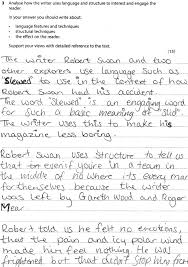 3 Analyse how the writer uses language and structure to interest and engage the reader.
In your answer you should write about:
• language features and techniques
• structural techniques
• the effect on the reader.
Support your views with detailed reference to the text.
(15)
The writer Robert Swan and two
other explorers use language such as
'Slewed' its use in the context of how
Robert Swan had his accident.
The word 'slewed' is an engaging word
for such a basic meaning of 'slid'.
The writer uses this to make his
magazine less boring.
Robert Swan uses structure to tell us
that even if you're in a team in
the middle of no where its every man
for themselves because the writer
was left by Gareth Wood and Roger
Mear
Robert told us he felt no emotions,
that the pain and icy polar wind
made him feel nothing. He was
frightened but that didn't stop him from